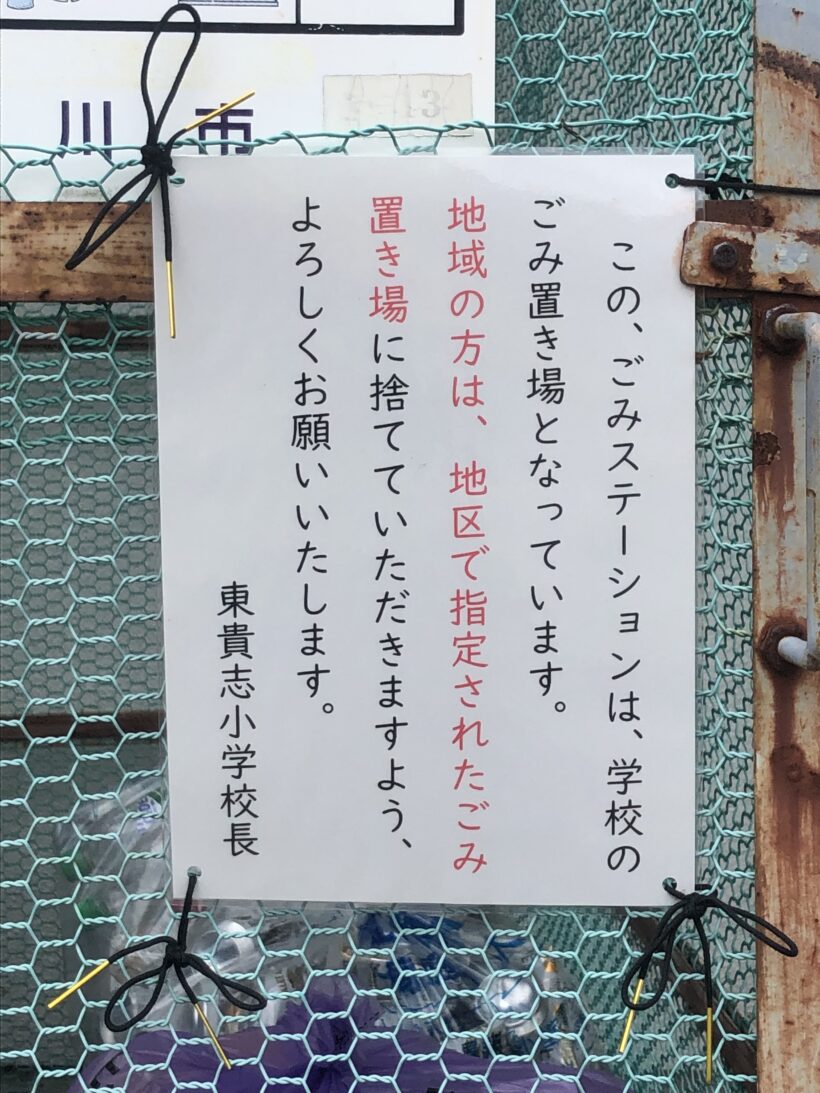 川市
この、ごみステーションは、学校の
ごみ置き場となっています。
地域の方は、地区で指定されたごみ
置き場に捨てていただきますよう、
よろしくお願いいたします。
東貴志小学校長